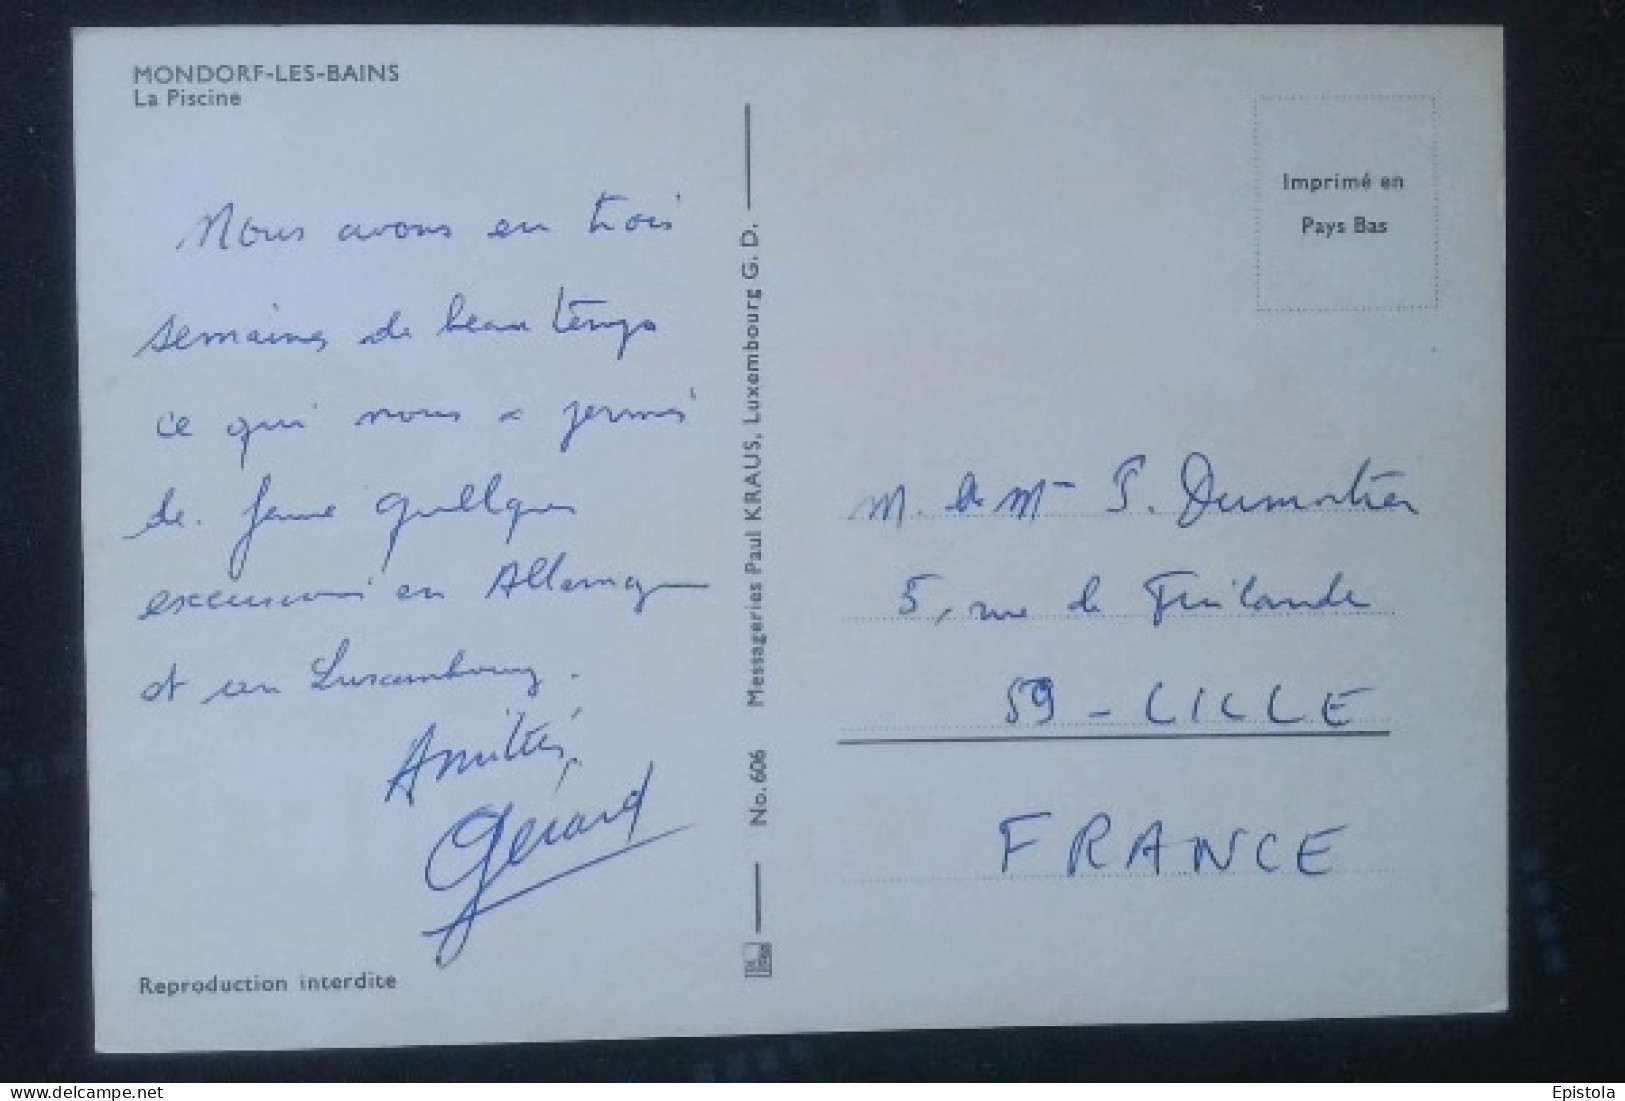 MONDORF-LES-BAINS
La Piscine
Nous avons eu trois
semaines de beau temps
ce qui nous a permis
de faire quelques
excursions en Allemagne
et au Luxembourg.
Amitiés
Gérard
Reproduction interdite
No. 606 Messageries Paul KRAUS, Luxembourg G. D.
Imprimé en
Pays Bas
M. et Me P. Dumortier
5, rue de Finlande
59 - LILLE
FRANCE
delcampe.net
Epistola